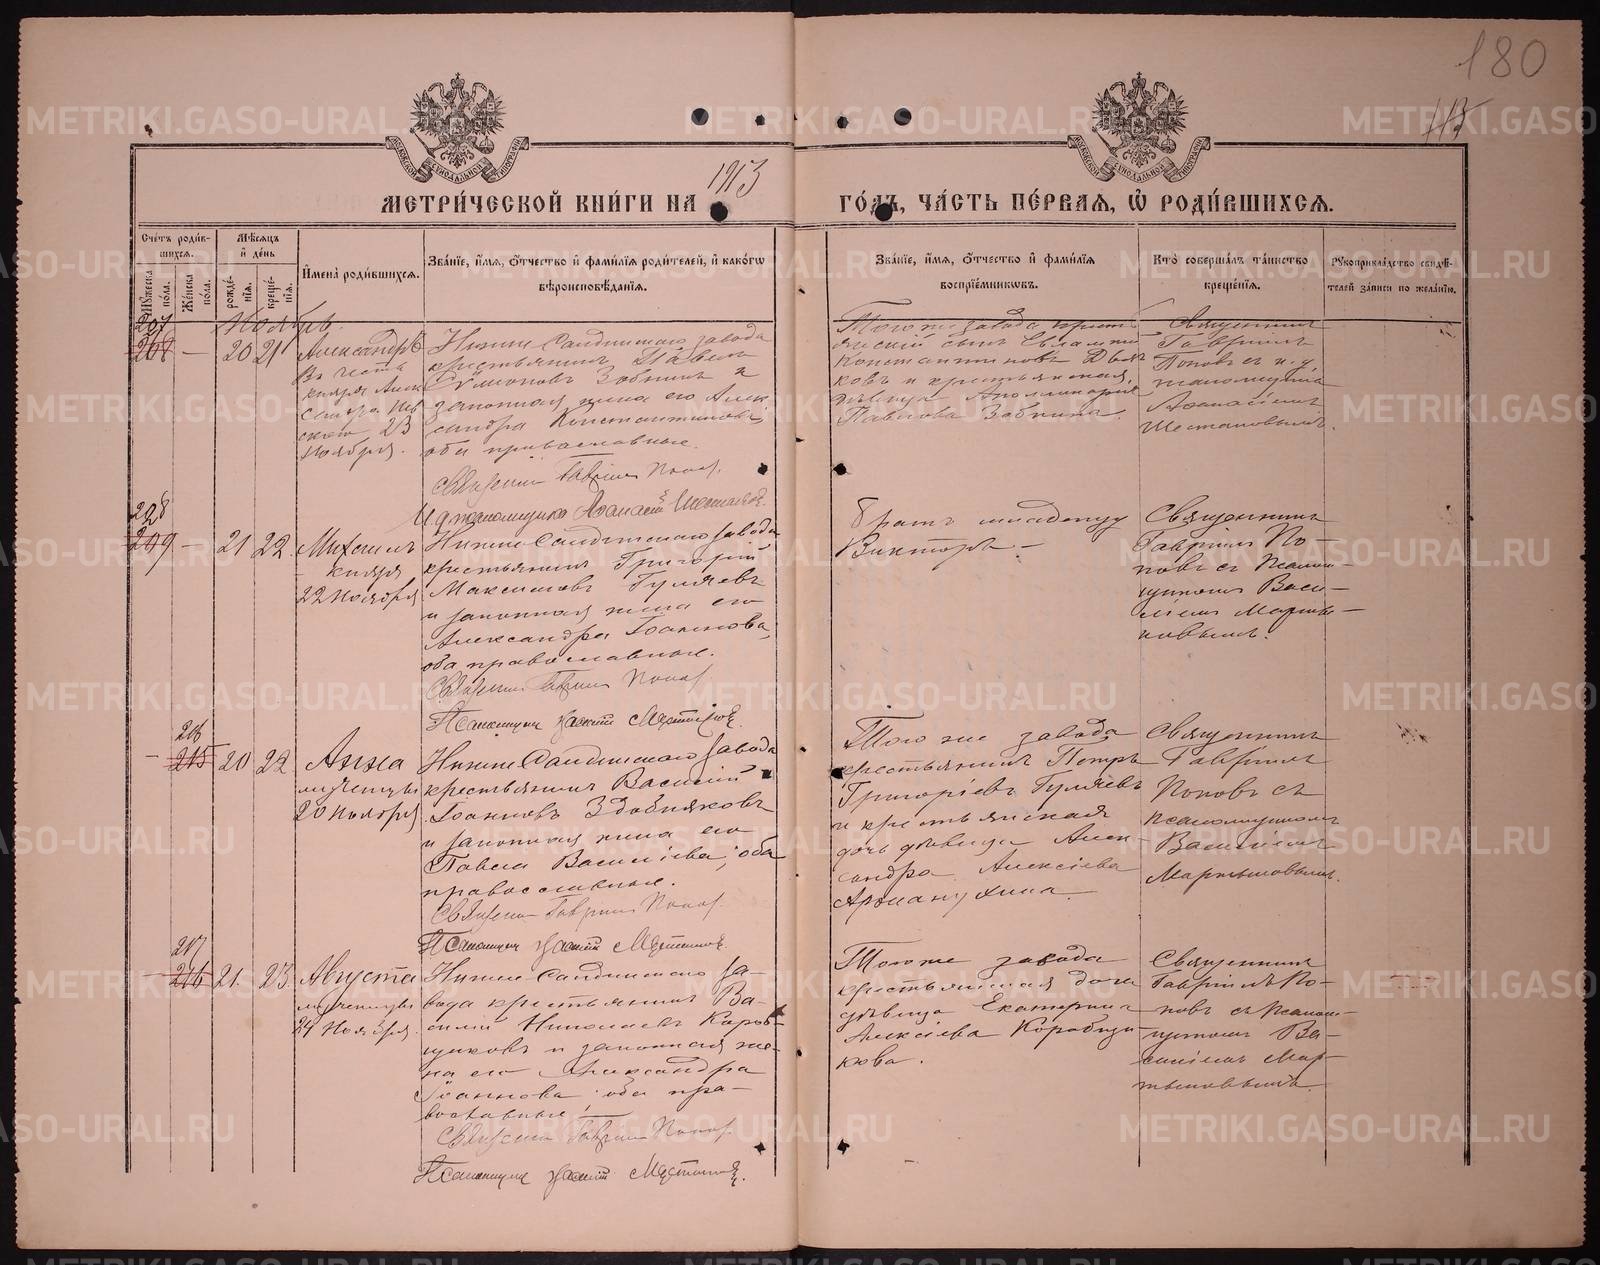 180
115
МОСКОВСКОЙ СѴНОДАЛЬНОЙ ТИПОГРАФІИ
МОСКОВСКОЙ СѴНОДАЛЬНОЙ ТИПОГРАФІИ
МЕТРИ́ЧЕСКОЙ КНИ́ГИ НА 1913
ГО́ДЪ, ЧА́СТЬ ПЕ́РВАЯ, Ѽ РОДИ́ВШИХСЯ.
Сче́тъ роди́в-
шихся.
Мꙋ́жеска пола.
Же́нска пола.
Мѣ́сяцъ
и҆ де́нь
рожде́-
нія.
креще́-
нія.
И҆мена̀ роди́вшихся.
Зва́ніе, и҆́мя, ѻ҆́тчество и҆ фами́лія роди́телей, и҆ како́гѡ
вѣроисповѣ́данія.
Зва́ніе, и҆́мя, ѻ҆́тчество и҆ фами́лія
воспріе́мникѡвъ.
Кто̀ соверша́лъ та́инство
креще́нія.
Рꙋкоприкла́дство свидѣ́-
телей за́писи по жела́нію.
Ноябрь.
207
208 — 20 21 Александръ
Въ честь
князя Алек
сандра Нев
скаго 23
Ноября.
Нижне Салдинскаго завода
крестьянинъ Павелъ
Сѵмеоновъ Зобнинъ и
законная жена его Алек
сандра Константинова,
оба православные.
Священникъ Гавріилъ Поповъ.
И д псаломщика Аѳанасій Шестаковъ.
Тогоже завода крестьянскій сынъ
Константиновъ Дья
ковъ и крестьянская
дѣвица Аполлинарія
Павлова Зобнина.
Священникъ
Гавріилъ
Поповъ съ и. д.
псаломщика
Аѳанасіемъ
Шестаковымъ.
208
209 — 21 22. Михаилъ
князя
22 Ноября
Нижне Салдинскаго завода
крестьянинъ Григорій
Максимовъ Гуляевъ
и законная жена его
Александра Іоаннова,
оба православные.
Священникъ Гавріилъ Поповъ.
Псаломщикъ Василій Мартыновъ.
братъ младенцу
Викторъ —
Священникъ
Гавріилъ По-
повъ съ Псалом-
щикомъ Васи-
ліемъ Марты-
новымъ.
216
— 215 20 22 Анна
мученицы
20 Ноября
Нижне Салдинскаго завода
крестьянинъ Василій
Іоанновъ Здобняковъ
и законная жена его
Павла Василіева, оба
православные.
Священникъ Гавріилъ Поповъ.
Псаломщикъ Василій Мартыновъ.
Того же завода
крестьянинъ Петръ
Григоріевъ Гуляевъ
и крестьянская
дочь дѣвица Алек-
сандра Алексіева
Священникъ
Гавріилъ
Поповъ съ
псаломщикомъ
Василіемъ
Мартыновымъ.
217
— 216 21. 23. Августа
мученицы
24 Ноября.
Нижне Салдинскаго за-
вода крестьянинъ Ва-
силій Николаевъ Короб-
щиковъ и законная же-
на его Александра
Іоаннова, оба пра-
вославные;
Священникъ Гавріилъ Поповъ
Псаломщикъ Василій Мартыновъ.
Тогоже завода
крестьянская дочь
дѣвица Екатерина
Алексіева Коробщи-
кова.
Священникъ
Гавріилъ По-
повъ съ псалом-
щикомъ Ва-
силіемъ Мар-
тыновымъ.
METRIKI.GASO-URAL.RU